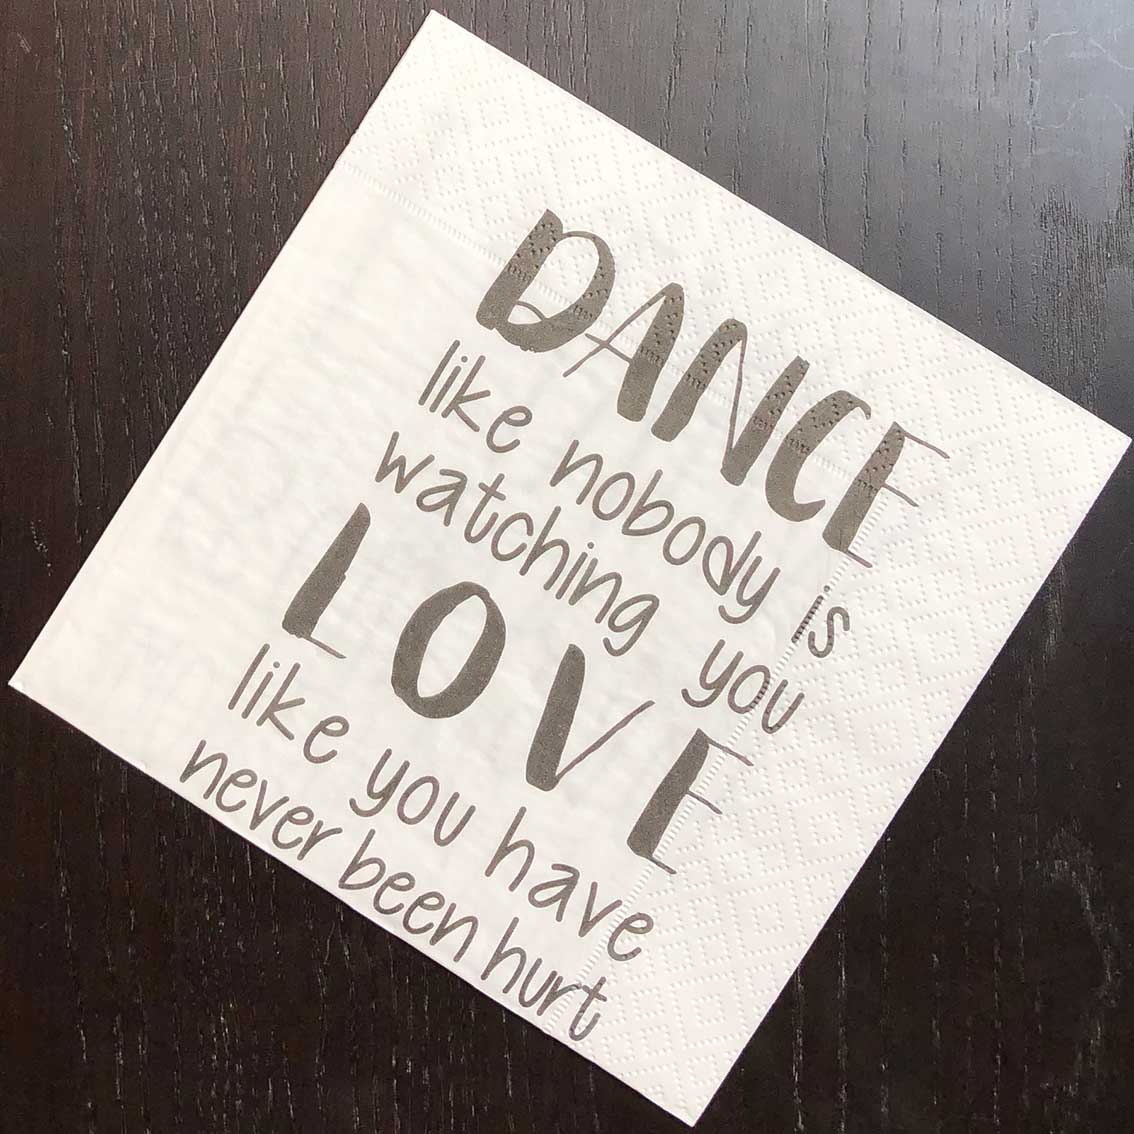 DANCE
like nobody is
watching you
LOVE
like you have
never been hurt